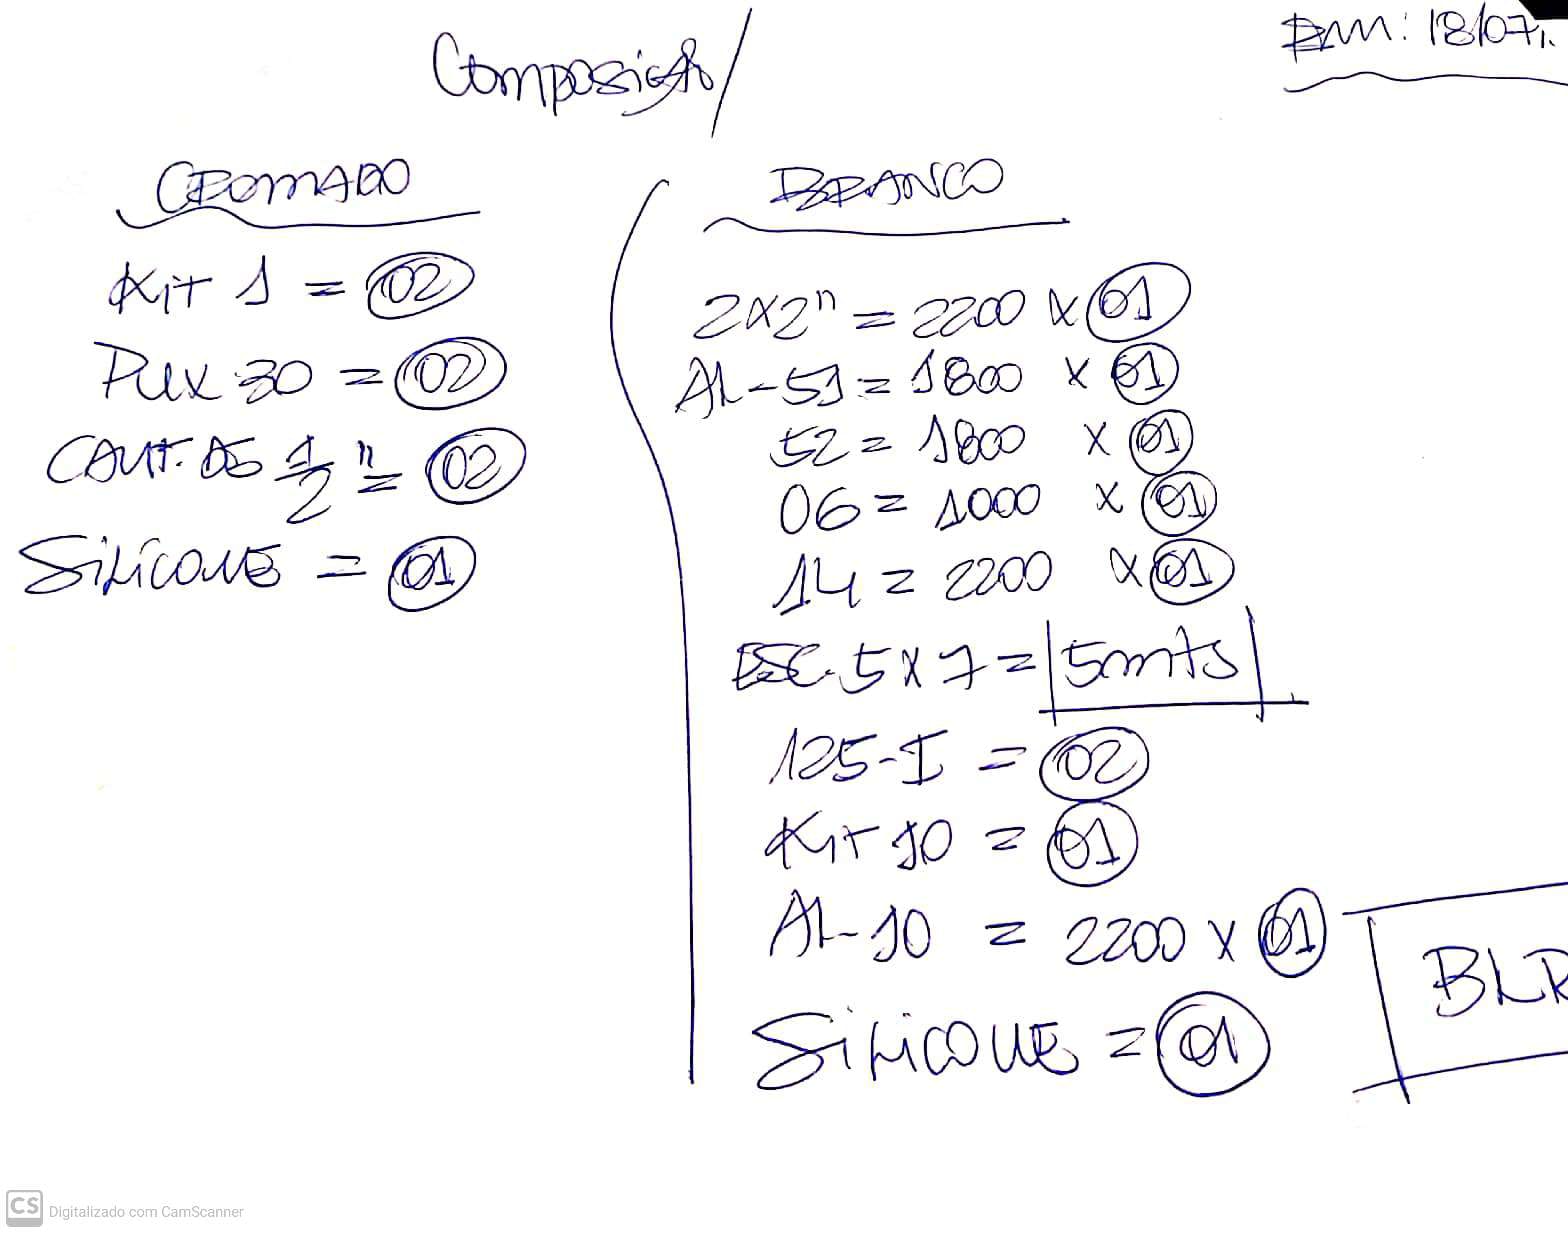 Composição/
Em: 18/07/.
CROMADO
Kit 1 = 02
Pux 30 = 02
CANT. DE 1/2" = 02
SILICONE = 01
BRANCO
2x2" = 2200 x 01
AL-51 = 1800 x 01
52 = 1800 x 01
06 = 1000 x 01
14 = 2200 x 01
ESC. 5x7 = 5mts
125-I = 02
Kit 10 = 01
AL-10 = 2200 x 01
SILICONE = 01
BLR
CS Digitalizado com CamScanner